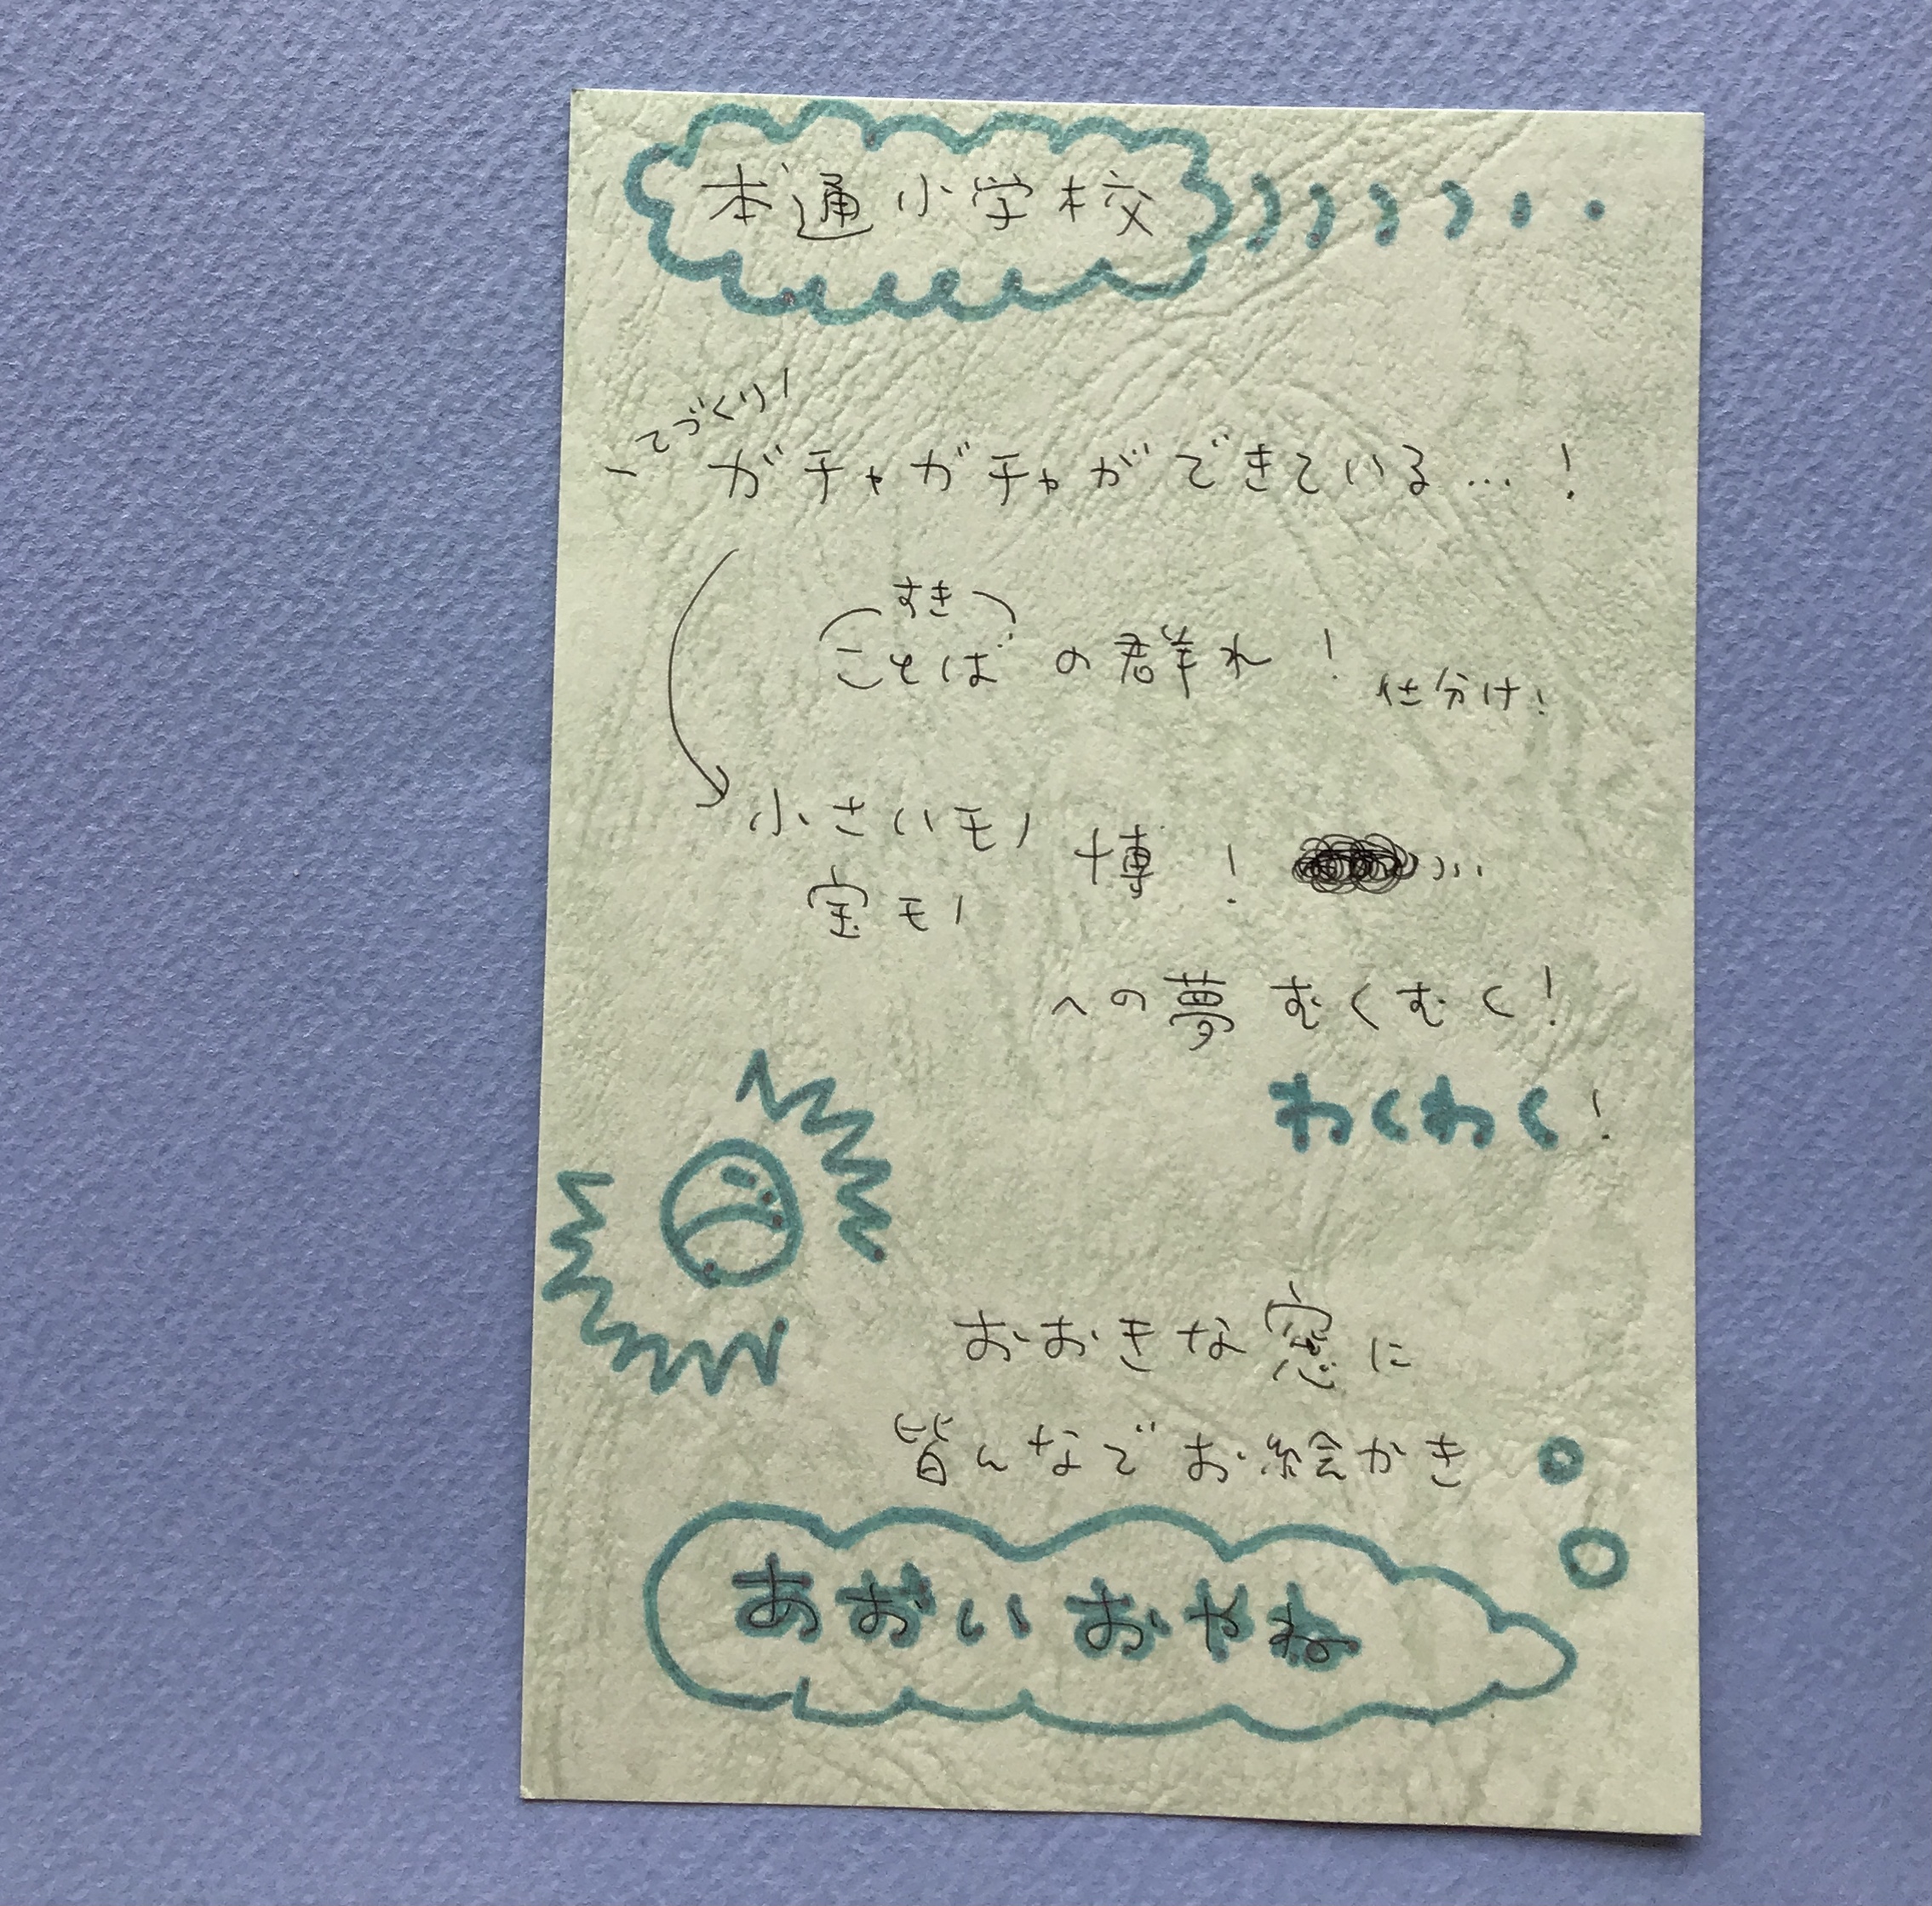 本通小学校
てづくり!
ガチャガチャができている…!
すき
ことばの群れ!
仕分け!
小さいモノ
宝モノ
博!
への夢むくむく!
わくわく!
おおきな窓に
皆んなでお絵かき
あおいおやね